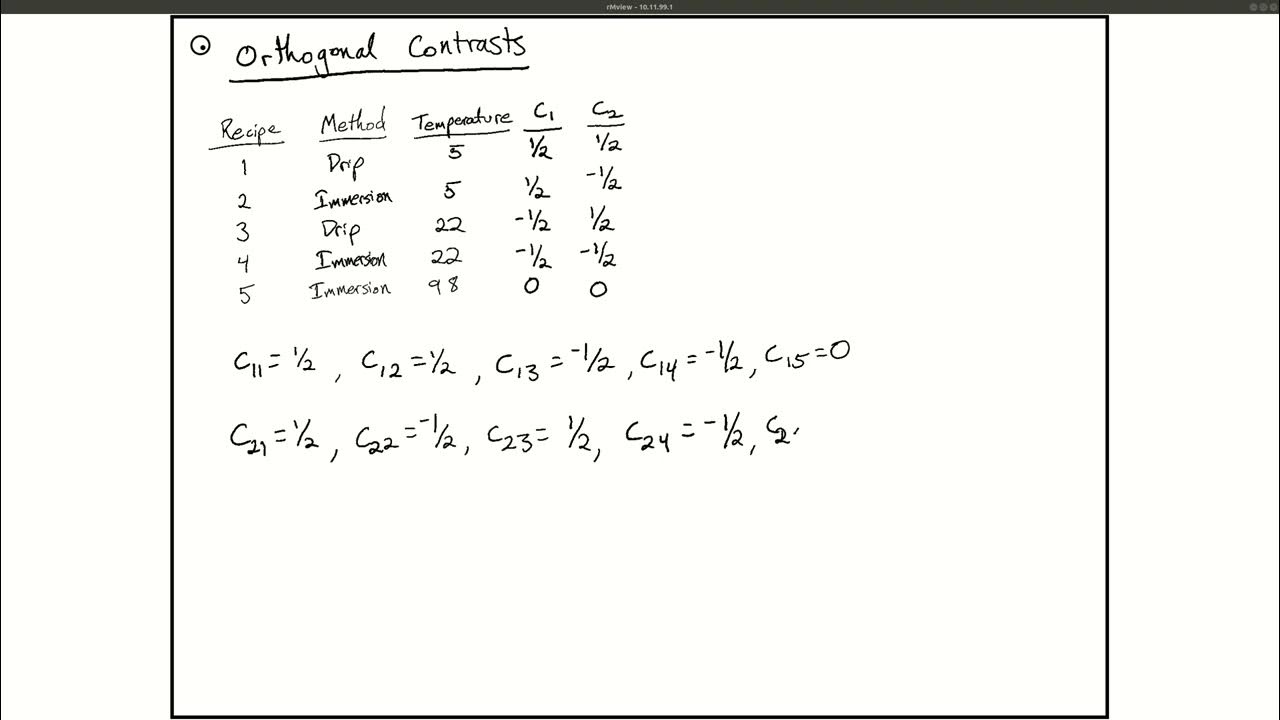 rMview - 10.11.99.1
Orthogonal Contrasts
Recipe Method Temperature C₁ C₂
1 Drip 5 1/2 1/2
2 Immersion 5 1/2 -1/2
3 Drip 22 -1/2 1/2
4 Immersion 22 -1/2 -1/2
5 Immersion 98 0 0
C₁₁ = 1/2 , C₁₂ = 1/2 , C₁₃ = -1/2 , C₁₄ = -1/2 , C₁₅ = 0
C₂₁ = 1/2 , C₂₂ = -1/2 , C₂₃ = 1/2 , C₂₄ = -1/2 , C₂